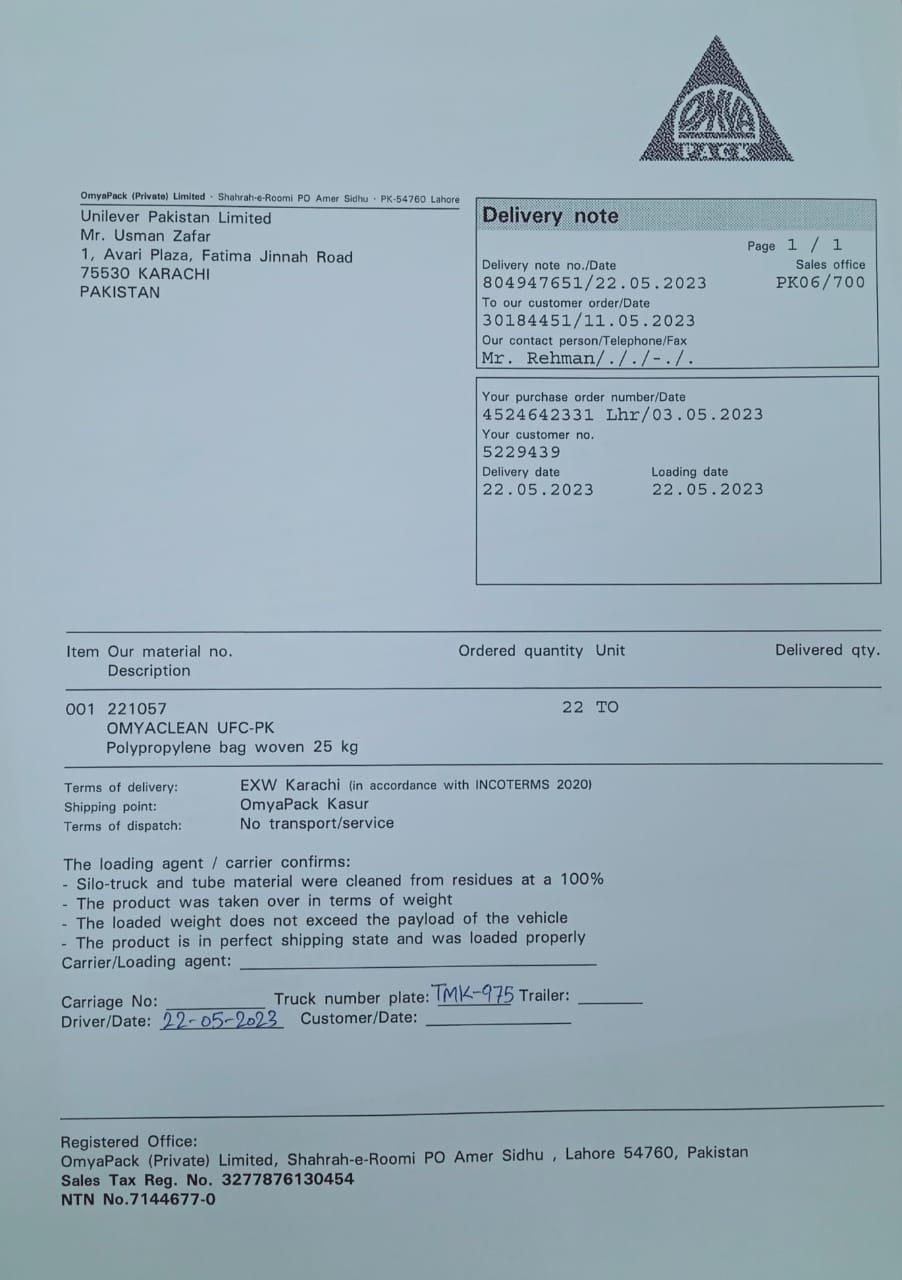 OMYA
PACK
OmyaPack (Private) Limited · Shahrah-e-Roomi PO Amer Sidhu · PK-54760 Lahore
Unilever Pakistan Limited
Mr. Usman Zafar
1, Avari Plaza, Fatima Jinnah Road
75530 KARACHI
PAKISTAN
Delivery note
Page 1 / 1
Delivery note no./Date Sales office
804947651/22.05.2023 PK06/700
To our customer order/Date
30184451/11.05.2023
Our contact person/Telephone/Fax
Mr. Rehman/././-./.
Your purchase order number/Date
4524642331 Lhr/03.05.2023
Your customer no.
5229439
Delivery date Loading date
22.05.2023 22.05.2023
Item Our material no. Ordered quantity Unit Delivered qty.
Description
001 221057 22 TO
OMYACLEAN UFC-PK
Polypropylene bag woven 25 kg
Terms of delivery: EXW Karachi (in accordance with INCOTERMS 2020)
Shipping point: OmyaPack Kasur
Terms of dispatch: No transport/service
The loading agent / carrier confirms:
- Silo-truck and tube material were cleaned from residues at a 100%
- The product was taken over in terms of weight
- The loaded weight does not exceed the payload of the vehicle
- The product is in perfect shipping state and was loaded properly
Carrier/Loading agent:
Carriage No: Truck number plate: TMK-975 Trailer:
Driver/Date: 22-05-2023 Customer/Date:
Registered Office:
OmyaPack (Private) Limited, Shahrah-e-Roomi PO Amer Sidhu , Lahore 54760, Pakistan
Sales Tax Reg. No. 3277876130454
NTN No.7144677-0